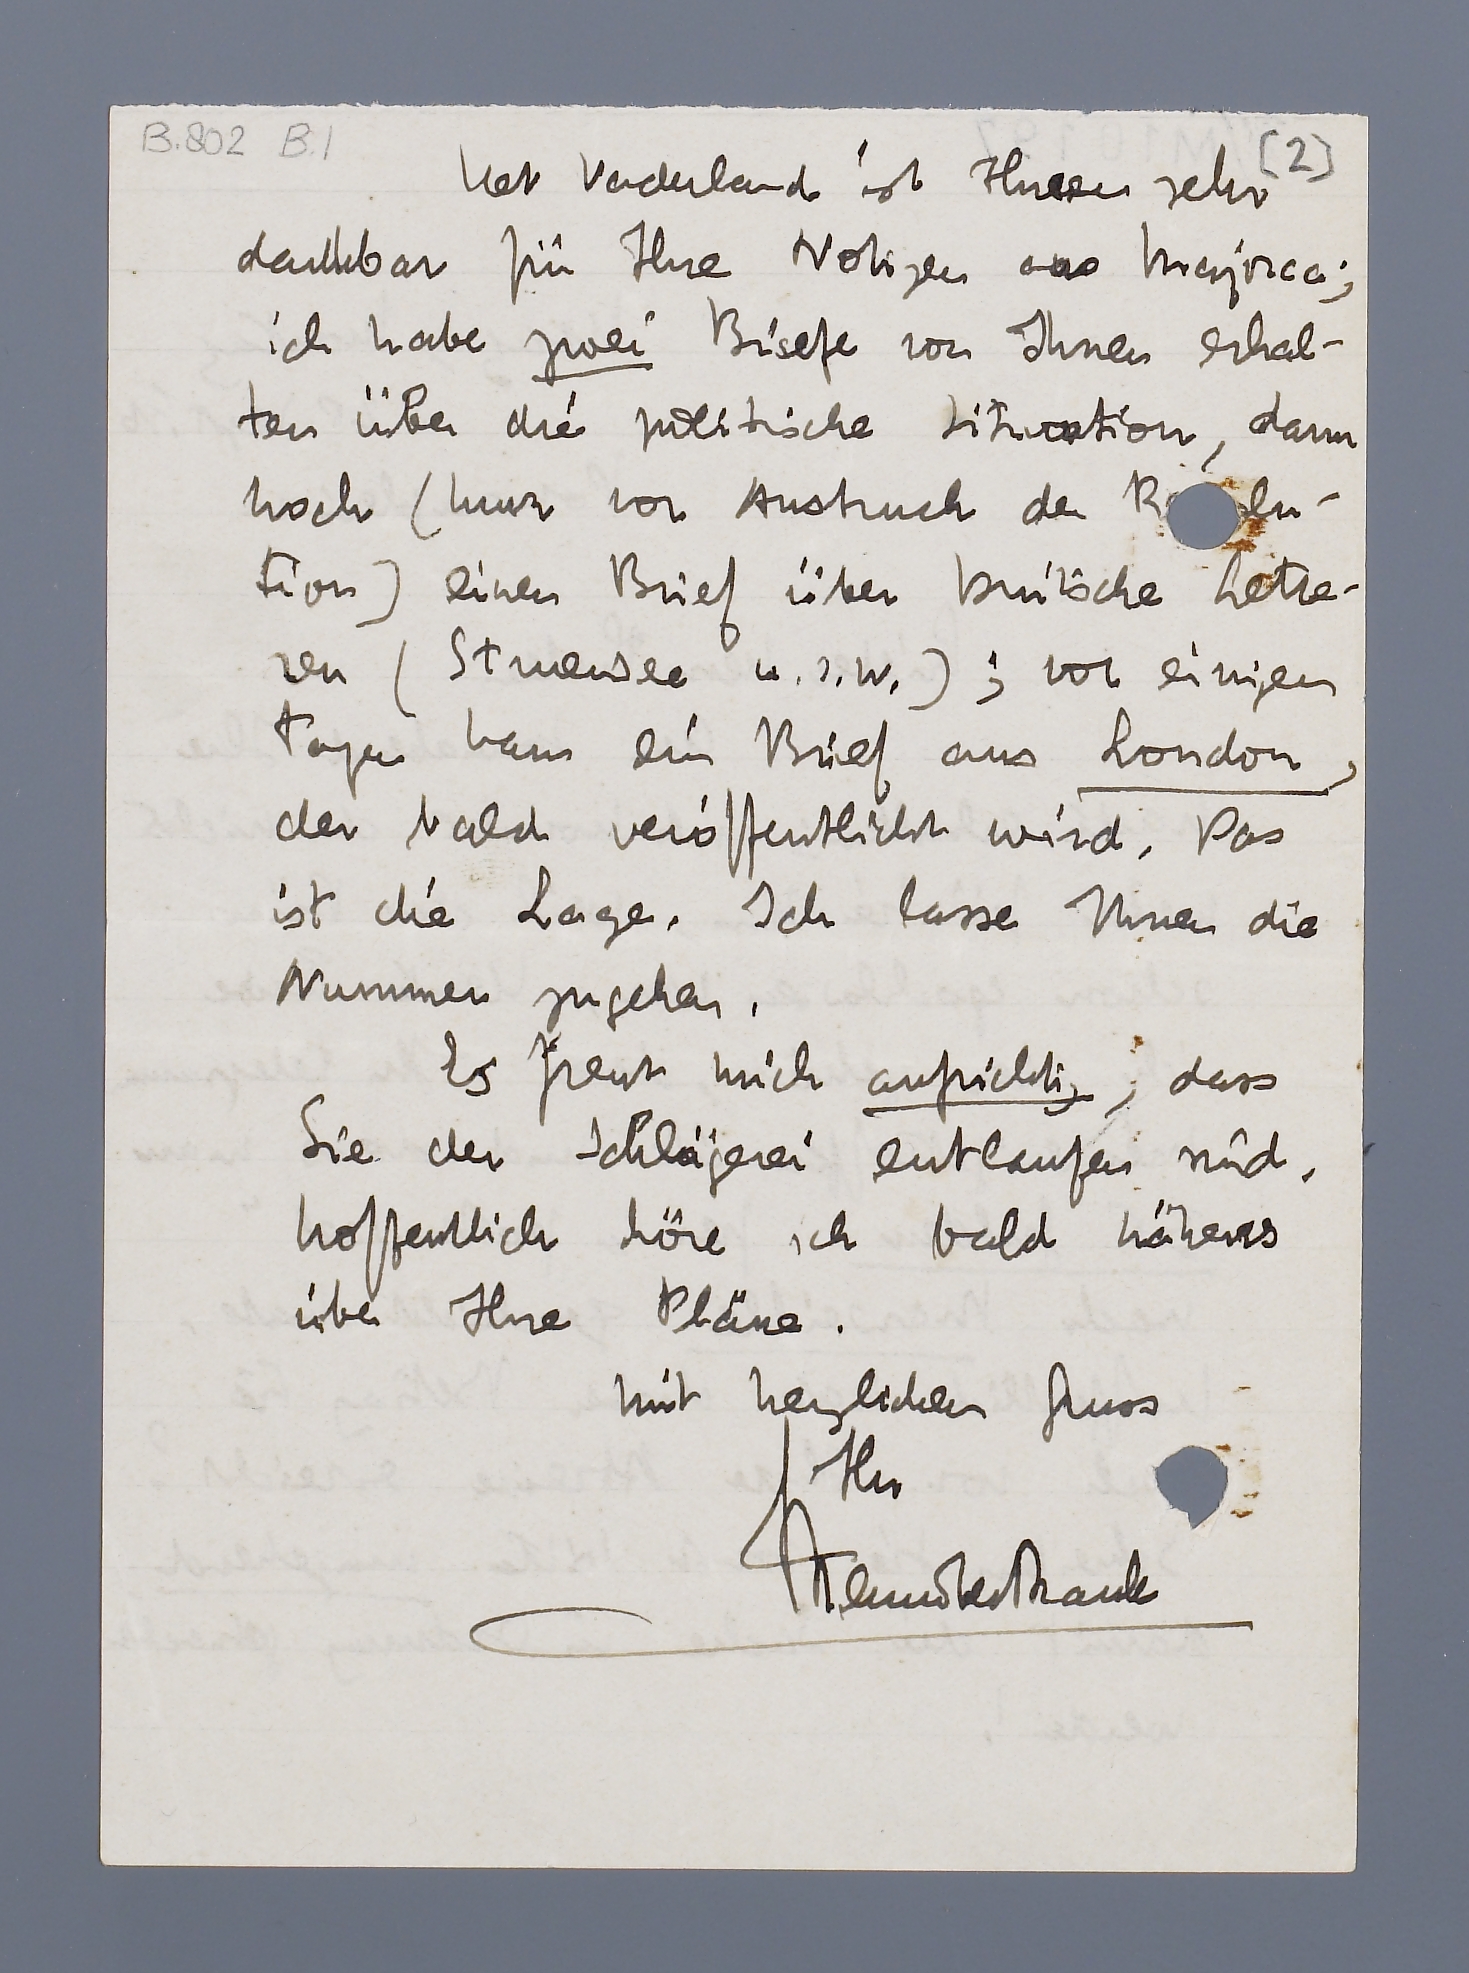 B.802 B.1
[2]
Het Vaderland ist Ihnen sehr
dankbar für Ihre Notizen aus Majorca;
ich habe zwei Briefe von Ihnen erhal-
ten über die politische Situation, dann
noch (kurz vor Ausbruch der R lu-
tion) einen Brief über deutsche Lette-
ren (Struensee u.s.w.); vor einigen
Tagen kam ein Brief aus London,
der bald veröffentlicht wird. Das
ist die Lage. Ich lasse Ihnen die
Nummern zugehen.
Es freut mich aufrichtig, dass
Sie der Schlägerei entlaufen sind.
Hoffentlich höre ich bald näheres
über Ihre Pläne.
Mit herzlichem Gruss
Ihr
Menno ter Braak